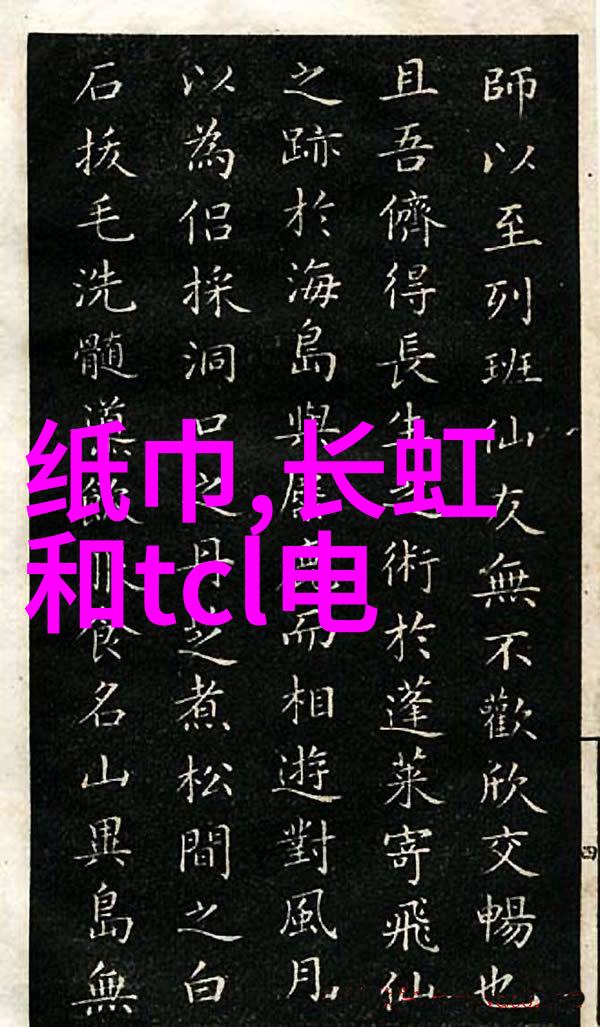 師以至列班仙友無不歡欣交暢也
且吾儕得長生之術於蓬萊寄飛仙
之跡於海島與群真而相遊對風月
以為侶採洞口之丹芝煮松間之白
石拔毛洗髓漠飲食名山異島無
纸巾,长虹
和tcl电
四